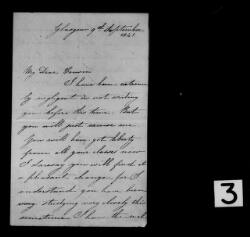 Glasgow 9th September
1841
My Dear
I have been extreme
ly negligent in not writing
you before this time. But
you will just excuse me
You will have got liberty
from all your classes now
I daresay you will find it
a pleasant change for I
understand you have been
very studying very closely this
I have the
3